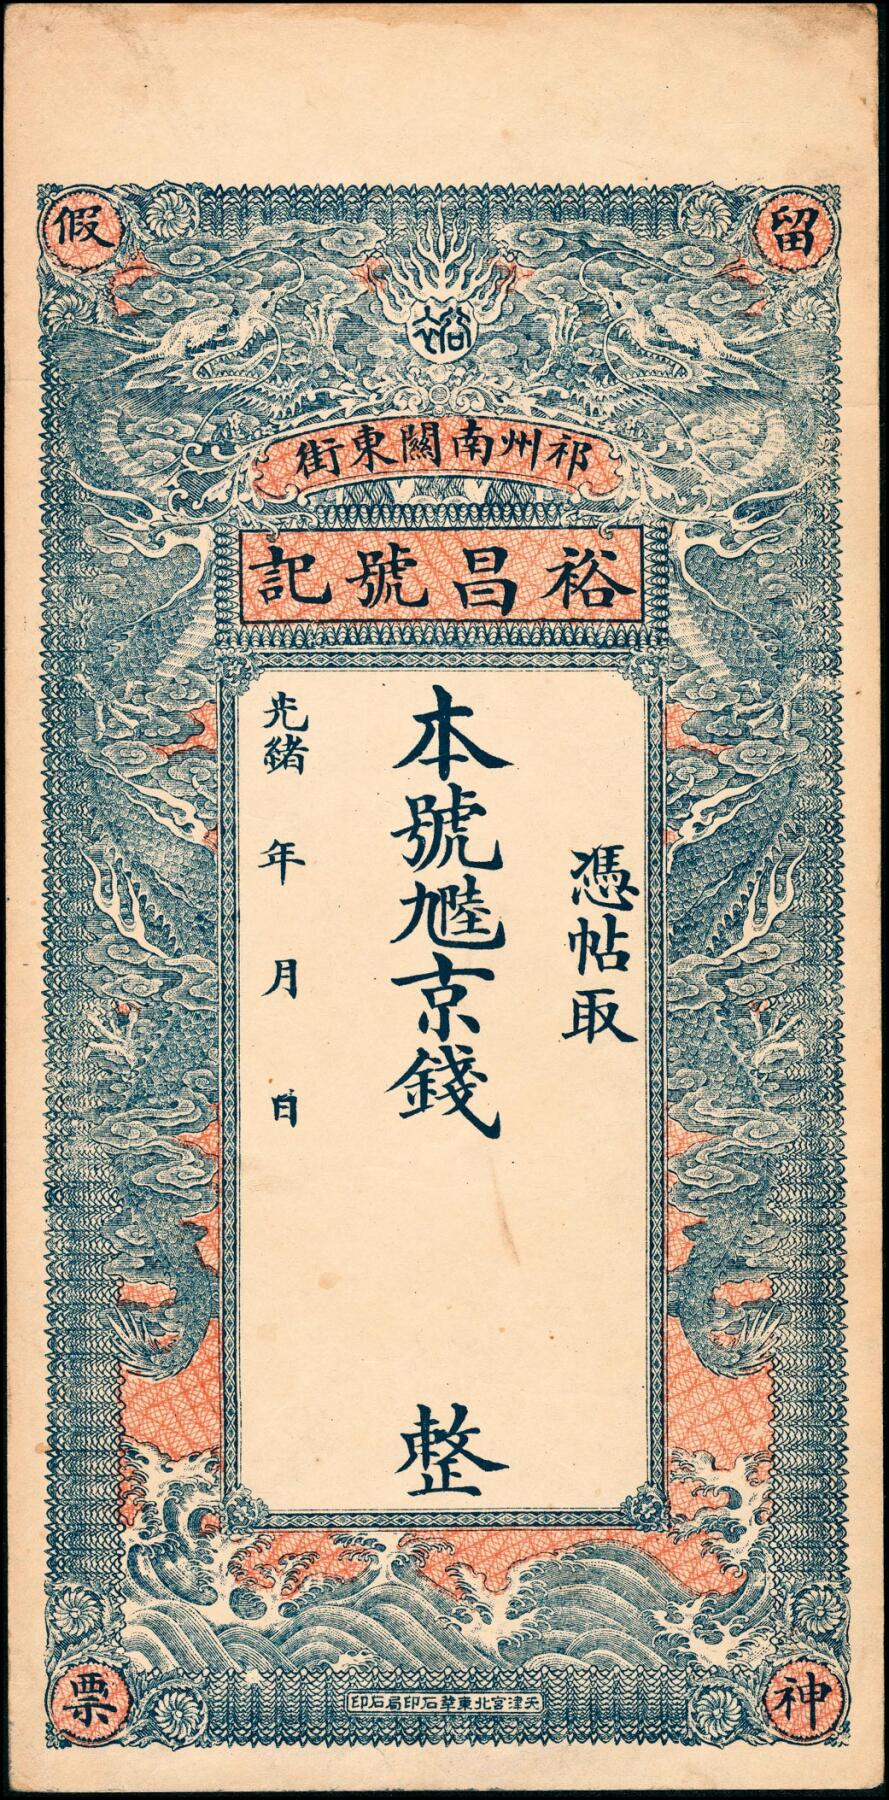 留假
裕
祁州南關東街
裕昌號記
憑帖取
本號京錢
整
光緒 年 月 日
神票
天津宮北東華石印局石印